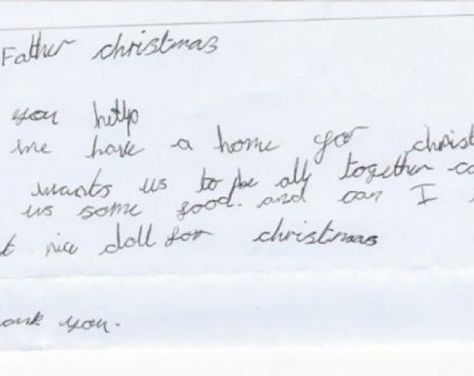 Father christmas
you help
me have a home for christ
wants us to be all together co
us some food. and can I
t nice doll for christmas
ank you.